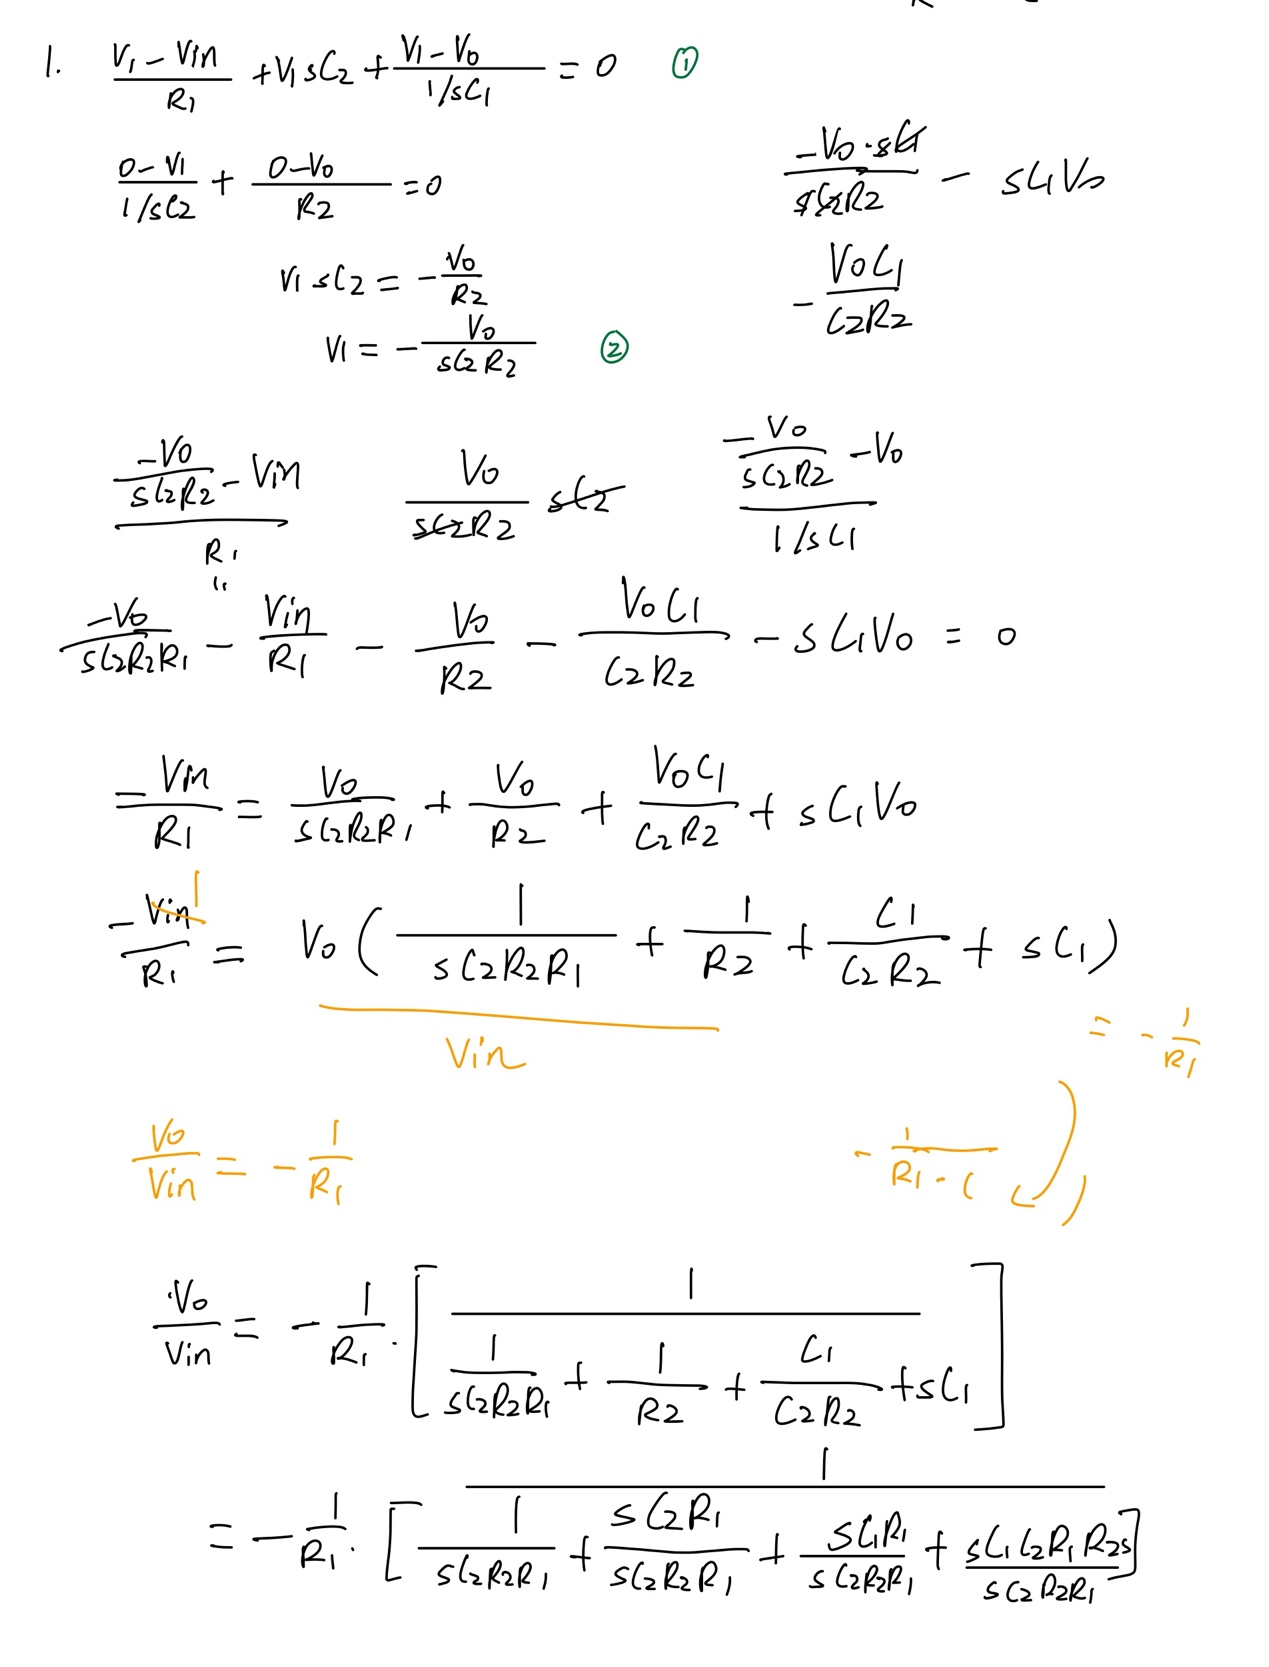 1. (V1 - Vin)/R1 + V1 sC2 + (V1 - Vo)/(1/sC1) = 0 ①
(0 - V1)/(1/sC2) + (0 - Vo)/R2 = 0
(-Vo · sC1)/(sC2R2) - sC1Vo
V1 sC2 = - Vo/R2
- VoC1/(C2R2)
V1 = - Vo/(sC2R2) ②
(-Vo/(sC2R2) - Vin)/R1
Vo/(sC2R2) sC2
(-Vo/(sC2R2) - Vo)/(1/sC1)
-Vo/(sC2R2R1) - Vin/R1 - Vo/R2 - VoC1/(C2R2) - sC1Vo = 0
-Vin/R1 = Vo/(sC2R2R1) + Vo/R2 + VoC1/(C2R2) + sC1Vo
1
-Vin/R1 = Vo (1/(sC2R2R1) + 1/R2 + C1/(C2R2) + sC1)
Vin
= - 1/R1
Vo/Vin = - 1/R1
- 1/(R1 · ( )
Vo/Vin = - 1/R1 · [1/(1/(sC2R2R1) + 1/R2 + C1/(C2R2) + sC1)]
= - 1/R1 · [1/(1/(sC2R2R1) + sC2R1/(sC2R2R1) + sC1R1/(sC2R2R1) + sC1C2R1R2s/(sC2R2R1))]